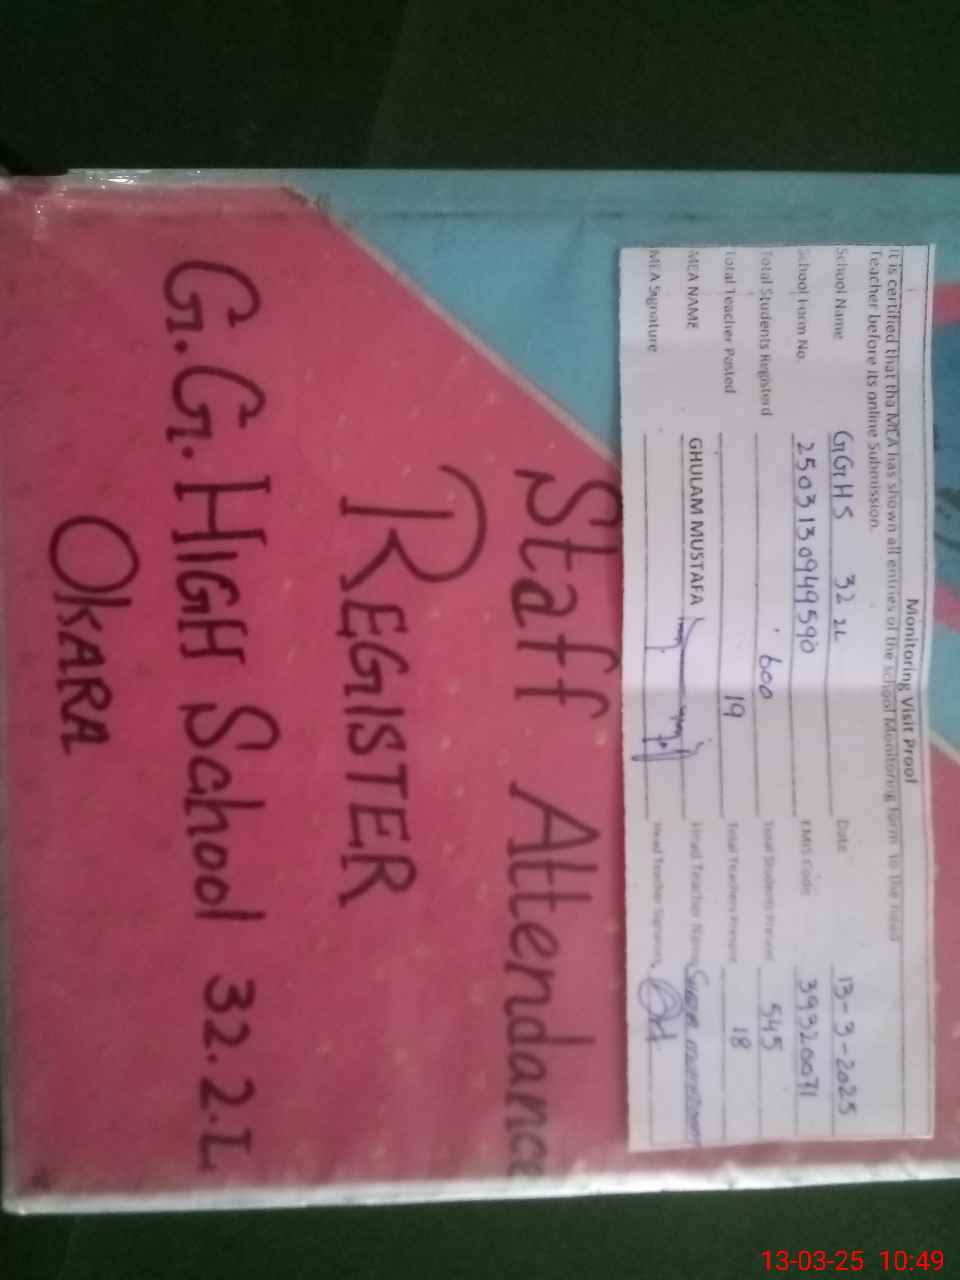 Monitoring Visit Proof
It is certified that tha MEA has shown all entries of the school Monitoring form to the head
Teacher before its online Submission.
School Name GGHS 32 2L Date 13-3-2025
School Form No. 2503130949590 EMIS Code 39320071
Total Students Registerd 600 Total Students Present 545
Total Teacher Posted 19 Total Teachers Present 18
MEA NAME GHULAM MUSTAFA Head Teacher Name
MEA Signature Head Teacher Signature
Staff Attendance
REGISTER
G.G. HIGH School 32.2.L
OKARA
13-03-25 10:49